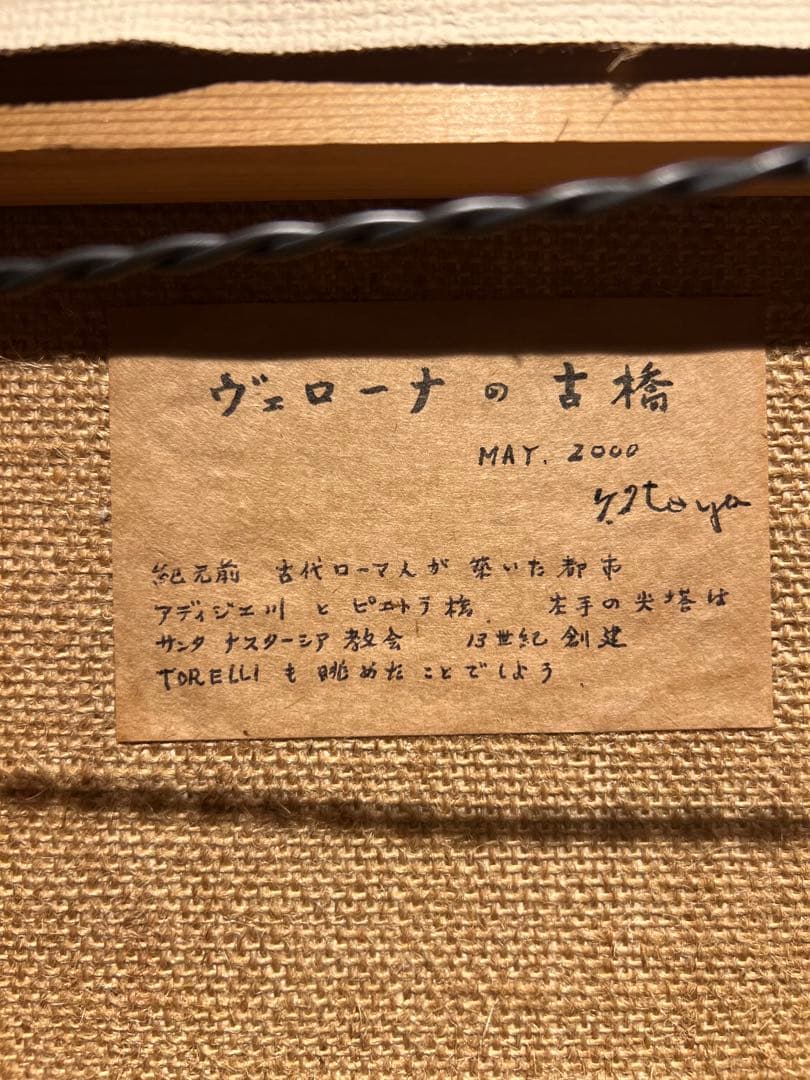 ヴェローナの古橋
MAY. 2000
Y. Itoya
紀元前 古代ローマ人が築いた都市
アディジェ川とピエトラ橋. 左手の尖塔は
サンタ ナスターシア教会 13世紀創建
TORELLIも眺めたことでしよう.